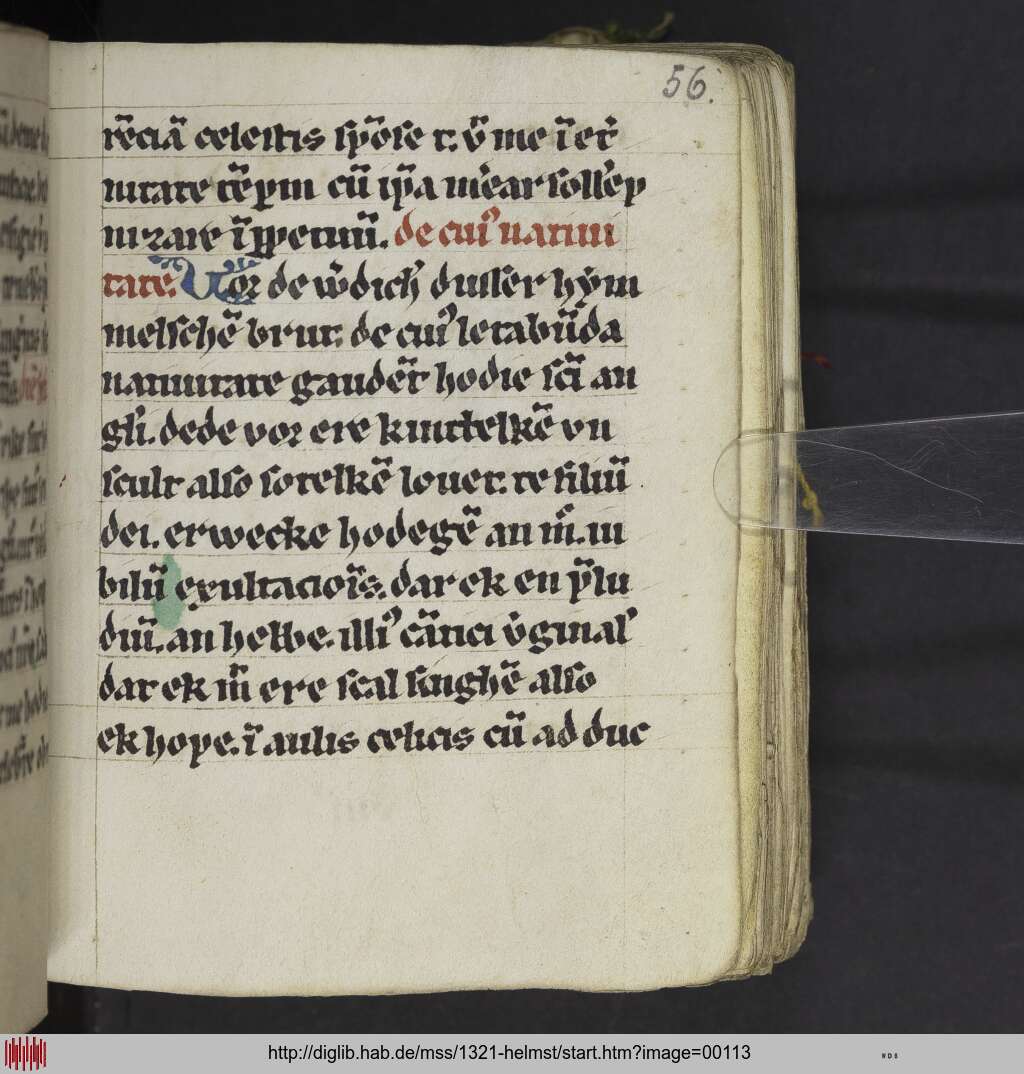 56.
rēciā celestis spōse t. v̄ me ī et̓
nitate tēpm cū ip̄a m̓ear solle̓p
nizare īppetuū. de cui᷒ natiui
tate. Vor de w̓dich̓ dusser hȳm
melschē brut. de cui᷒ letabūda
natiuitate gaudēt hodie scī̄ an
gli̓. dede vor ere kintlelkē vn
scult also sotelkē louet. te filiū
dei. erwecke hodegē an m̄. iu
bilū exultacioīs. dar ek en p̄lu
diū. an hebbe. illi᷒ cātici v̓ginal᷒
dar ek m̄ ere scal singhē also
ek hope. ī aulis celicis cū ad duc
http://diglib.hab.de/mss/1321-helmst/start.htm?image=00113